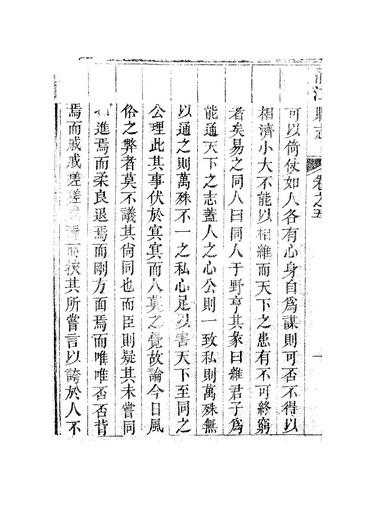 江縣志 卷之五 一
可以倚仗如人各有心身自爲謀則可否不得以
相濟小大不能以相維而天下之患有不可終窮
者矣易之同人曰同人于野亨其彖曰維君子爲
能通天下之志蓋人之心公則一致私則萬殊無
以通之則萬殊不一之私心足以害天下至同之
公理此其事伏於冥冥而人莫之覺故論今日風
俗之弊者莫不議其尚同也而臣則疑其未嘗同
進焉而柔良退焉而剛方面焉而唯唯否否背
焉而戚戚差差焉而挾其所嘗言以誇於人不